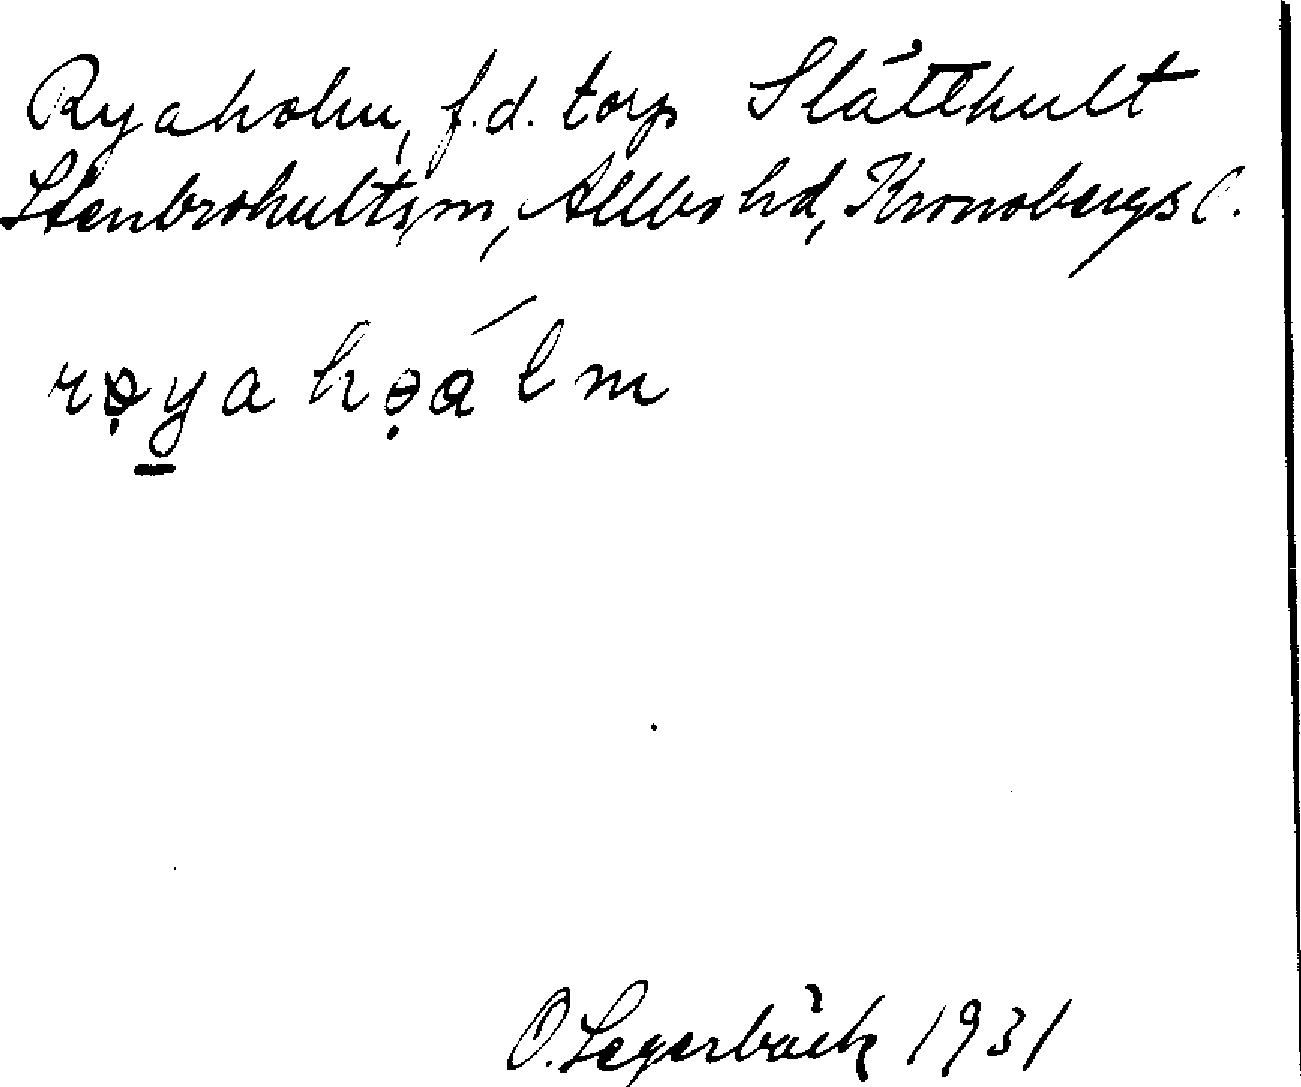 Ryaholm, f.d. torp Slätthult
Stenbrohults sn, Allbo hd, Kronobergs l.
rø̣y̱a họál m
O. Legerbäck 1931